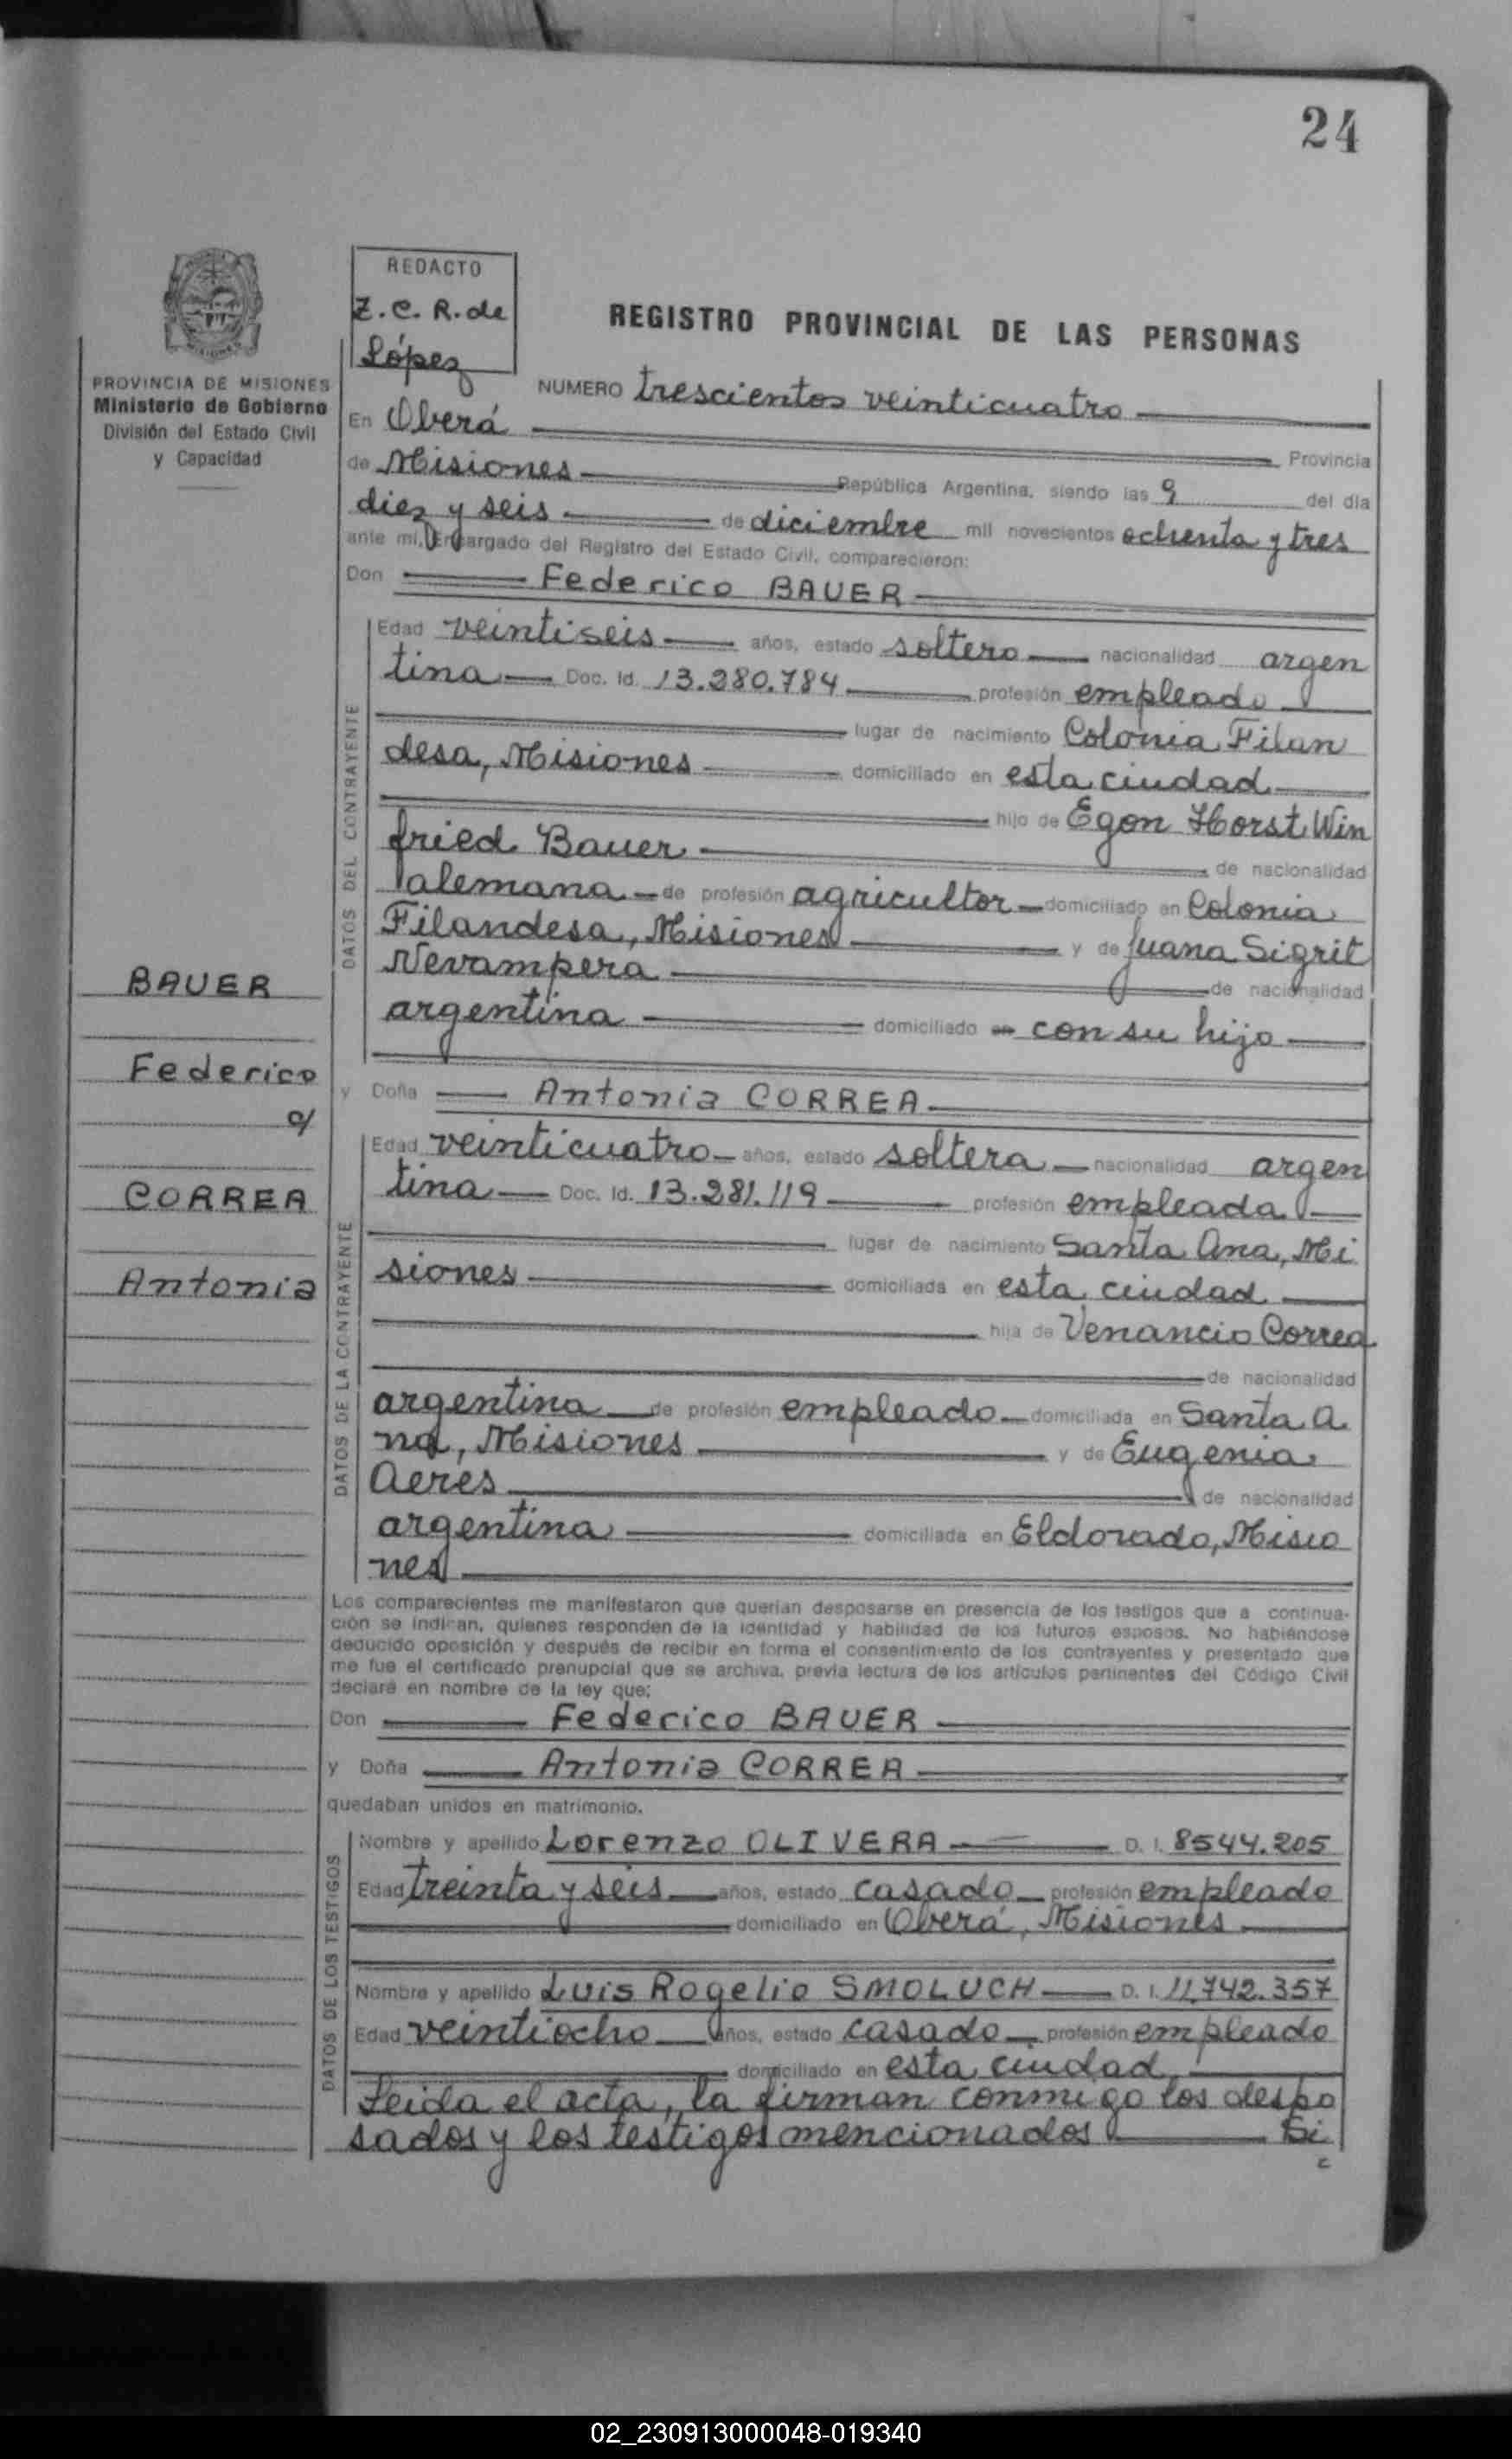 24
REDACTO
Z. C. R. de
López
REGISTRO PROVINCIAL DE LAS PERSONAS
MISIONES
PROVINCIA DE MISIONES
Ministerio de Gobierno
División del Estado Civil
y Capacidad
NUMERO trescientos veinticuatro
En Oberá
Provincia
de Misiones República Argentina, siendo las 9 del día
diez y seis de diciembre mil novecientos ochenta y tres
ante mí, Encargado del Registro del Estado Civil, comparecieron:
Don Federico BAUER
DATOS DEL CONTRAYENTE
Edad veintiseis años, estado soltero nacionalidad argen
tina Doc. Id. 13.280.784 profesión empleado
lugar de nacimiento Colonia Filan
desa, Misiones domiciliado en esta ciudad
hijo de Egon Horst Win
fried Bauer de nacionalidad
alemana de profesión agricultor domiciliado en Colonia
Filandesa, Misiones y de Juana Sigrit
Nevampera de nacionalidad
argentina domiciliado en con su hijo
BAUER
Federico
c/
CORREA
Antonia
y Doña Antonia CORREA
DATOS DE LA CONTRAYENTE
Edad veinticuatro años, estado soltera nacionalidad argen
tina Doc. Id. 13.281.119 profesión empleada
lugar de nacimiento Santa Ana, Mi
siones domiciliada en esta ciudad
hija de Venancio Correa
de nacionalidad
argentina de profesión empleado domiciliada en Santa A
na, Misiones y de Eugenia
Aeres de nacionalidad
argentina domiciliada en Eldorado, Misio
nes
Los comparecientes me manifestaron que querían desposarse en presencia de los testigos que a continua-
ción se indican, quienes responden de la identidad y habilidad de los futuros esposos. No habiéndose
deducido oposición y después de recibir en forma el consentimiento de los contrayentes y presentado que
me fue el certificado prenupcial que se archiva, previa lectura de los artículos pertinentes del Código Civil
declaré en nombre de la ley que:
Don Federico BAUER
y Doña Antonia CORREA
quedaban unidos en matrimonio.
DATOS DE LOS TESTIGOS
Nombre y apellido Lorenzo OLIVERA D. I. 8544.205
Edad treinta y seis años, estado casado profesión empleado
domiciliado en Oberá, Misiones
Nombre y apellido Luis Rogelio SMOLUCH D. I. 11.742.357
Edad veintiocho años, estado casado profesión empleado
domiciliado en esta ciudad
Leida el acta, la firman conmigo los despo
sados y los testigos mencionados Si
02_230913000048-019340